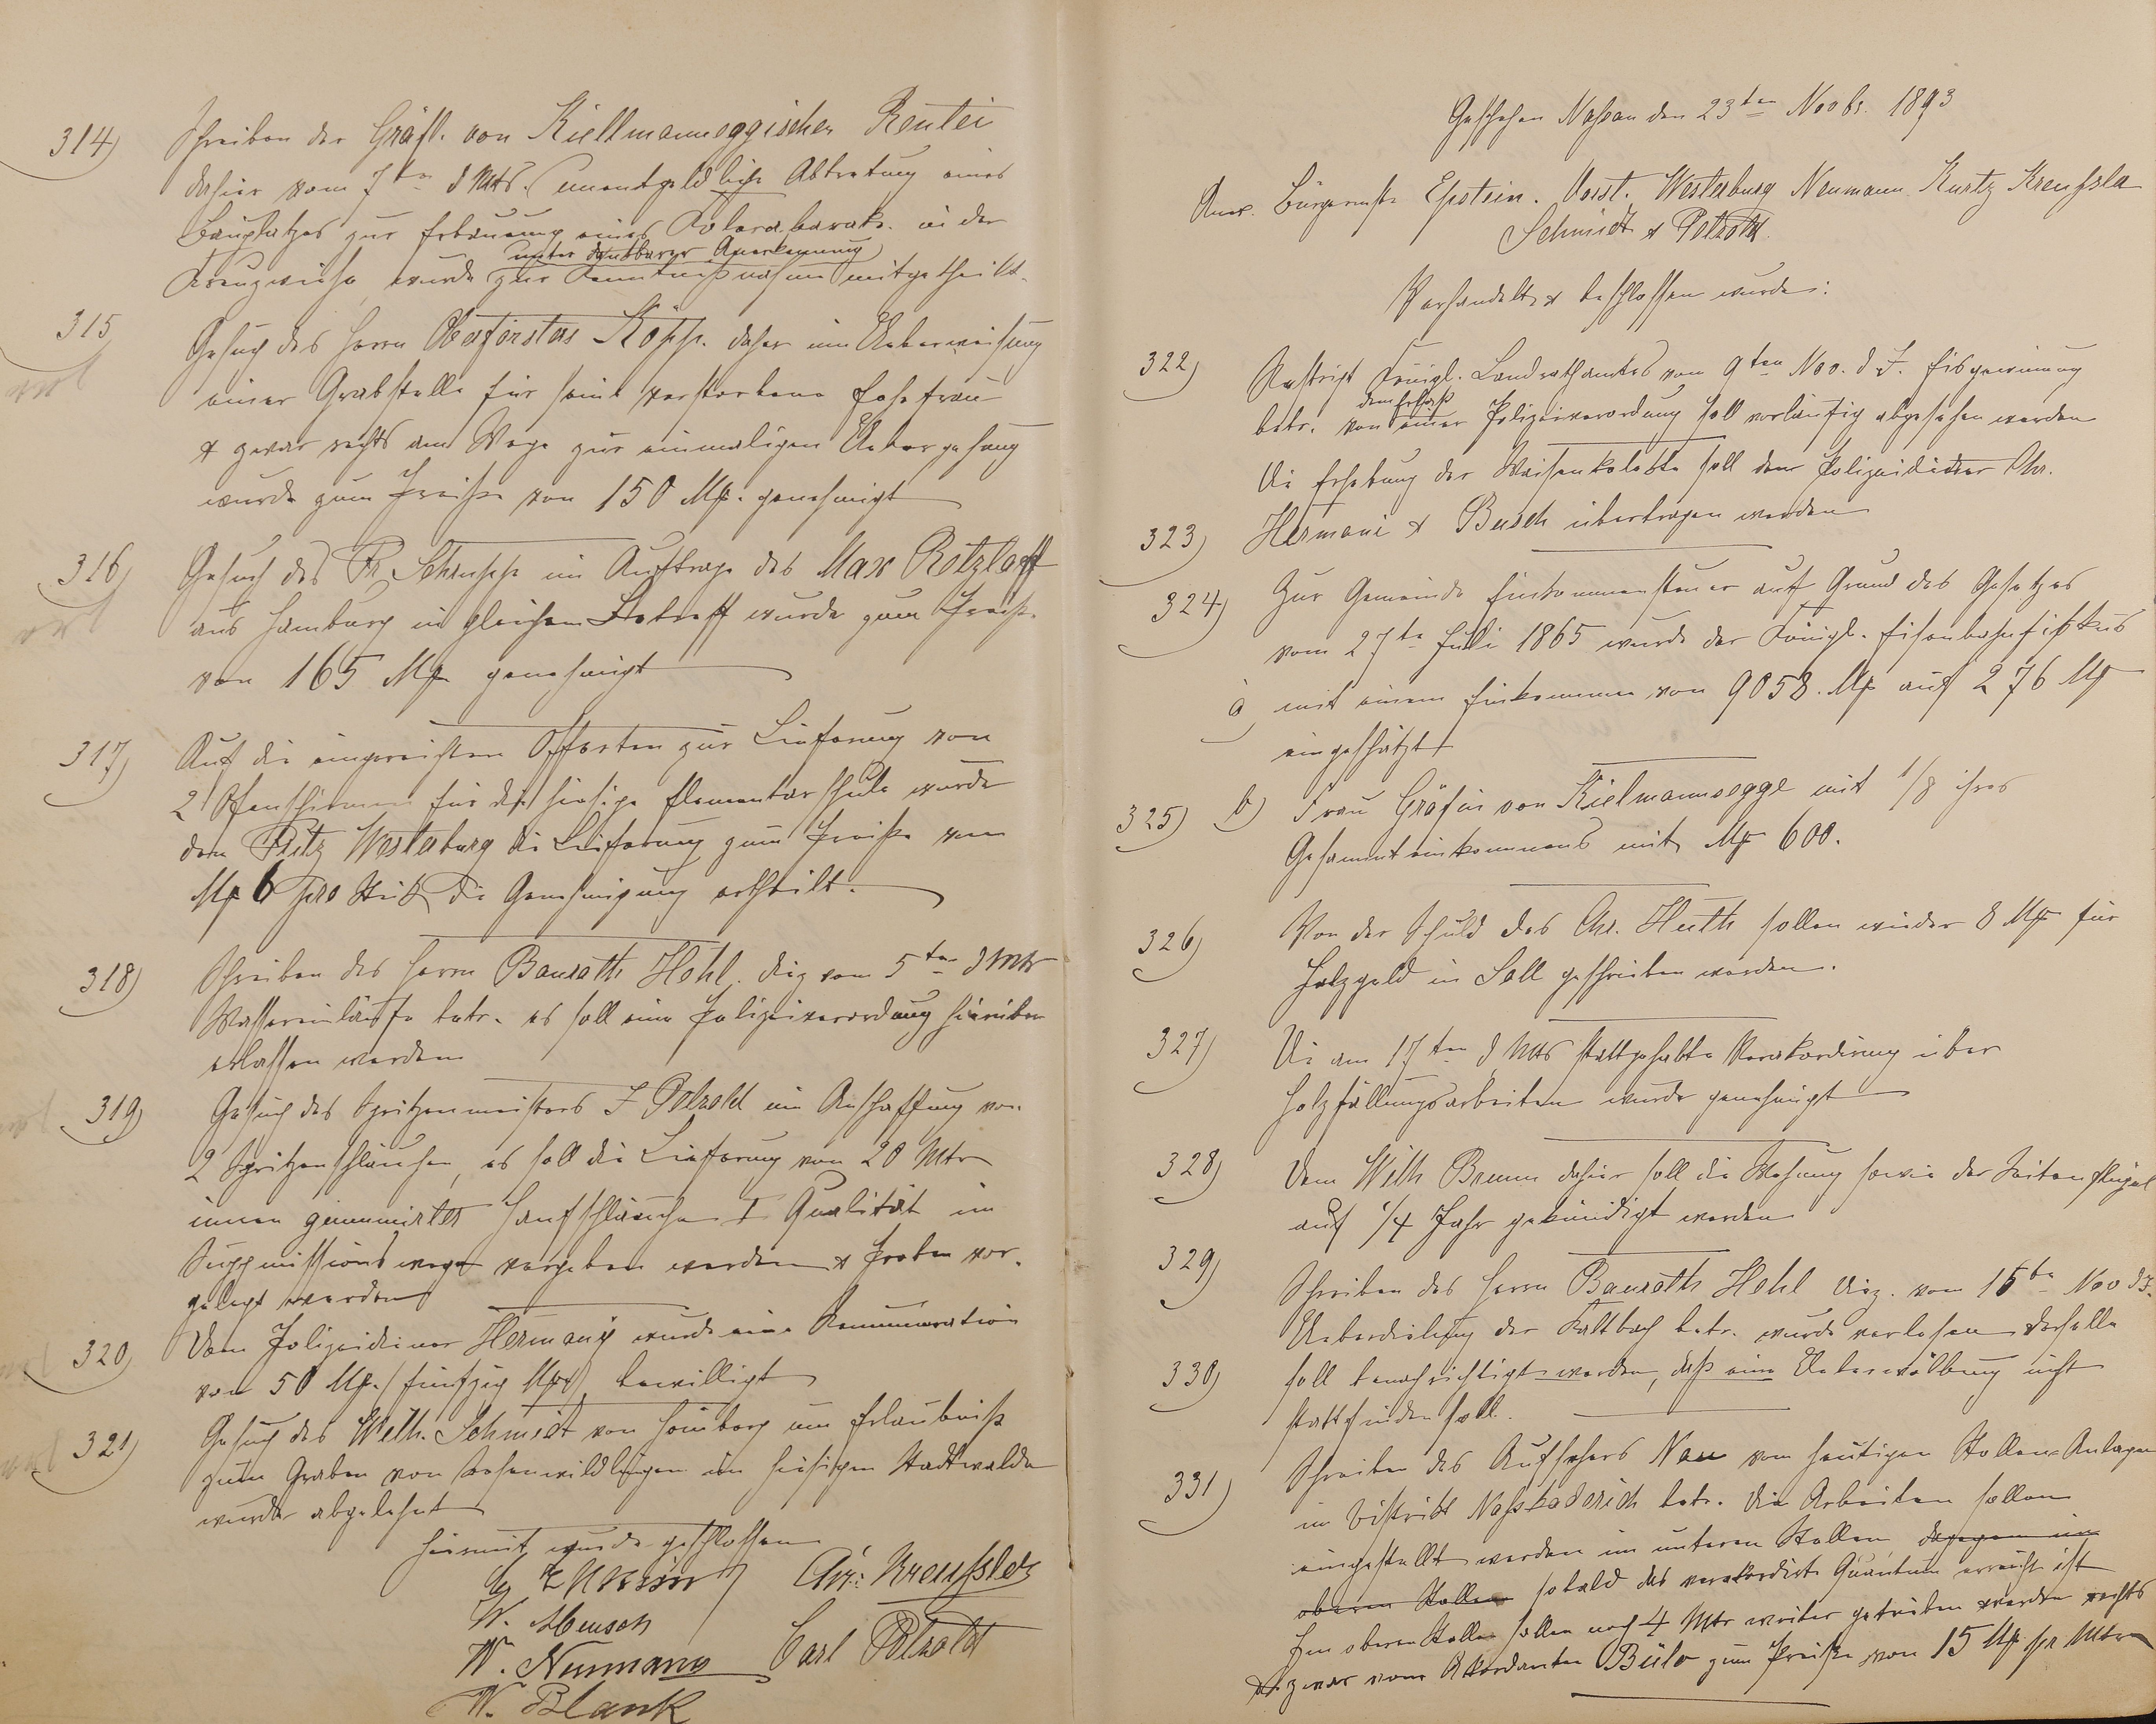 314) Schreiben der Gräfl. von Kiellmanneggischen Rentei
dahier vom 7ten d Mts. (unentgeldliche Abtretung eines
Bauplatzes zur Erbauung eines Colerabarak. in der
unter dankbarer Anerkennung
Kreuzwiese, wurde zur Kenntnißnahme mitgetheilt.
315 Gesuch des Herrn Oberförsters Köpp. daher um Ueberweisung
einer Grabstelle für seine verstorbene Ehefrau
& zwar rechts am Wege zur einmaligen Uebergehung
wurde zum Preiße von 150 Mk. genehmigt
316) Gesuch des Fr. Schrupp im Auftrage des Max Rotzlaff
aus Hamburg in gleichem Betreff wurde zum Preiße
von 165 Mk genehmigt
317) Auf die eingereichten Offerten zur Lieferung von
2 Ofenschirmen für die hiesige Elementarschule wurde
dem Fritz Westerburg die Lieferung zum Preiße von
Mk 6 pro Stück die Genehmigung ertheilt.
318) Schreiben des Herrn Baurath Hehl. diez vom 5ten d Mts
Wassereinläufe betr. es soll eine Polizeiverordnung hierüber
erlassen werden
319) Gesuch des Spritzenmeisters J Pelzold um Anschaffung von
2 Spritzenschläuchen, es soll die Lieferung von 20 Mtr
innen gummirter Hanfschläuche I Qualität im
Suppmissionswege vergeben werden & Proben vor-
gelegt werden
320) Dem Polizeidiener Hermani wurde eine Remuneration
von 50 Mk. (fünfzig Mk) bewilligt
321) Gesuch des Wilh. Schmidt von Homberg um Erlaubniß
zum Graben von Rosenwildlingen im hiesigen Stadtwalde
wurde abgelehnt
Hiermit wurde geschlossen
Chr: Kreußler
W. Mensch
W. Neumann Carl Pelzold
W. Blank
Geschehen Naßau den 23ten Novbr. 1893
Anw. Bürgermstr Epstein. Vorst. Westerburg Neumann Kurtz Kreußla
Schmidt & Pelzold
Verhandelt & beschlossen wurde:
322) Reskript Königl. Landrathamtes vom 9ten Nov. d J. Eisgewinnung
dem Erlaß
betr. von einer Polizeiverordnung soll vorläufig abgesehen werden
Die Erhebung der Waisenkolekte soll dem Polizeidiener Chr.
323) Hermani & Busch übertragen werden
324) Zur Gemeinde Einkommensteuer auf Grund des Gesetzes
vom 27te Juli 1865 wurde der Königl. Eisenbahnfißkus
a) mit einem Einkommen von 9058. Mk auf 276 Mk
eingeschätzt
325) b) Frau Gräfin von Kielmannsegge mit 1/8 ihres
Gesammteinkommens mit Mk 600.
326) Von der Schuld des Chr. Huth sollen wieder 8 Mk für
Holzgeld in Soll geschrieben werden.
327) Die am 17ten d Mts stattgehabte Verakordirung über
Holzfällungsarbeiten wurde genehmigt
328) Dem Wilh Bremm dahier soll die Wohnung sowie der Seitenflügel
auf 1/4 Jahr gekündigt werden
329) Schreiben des Herrn Baurath Hehl diez. vom 15te Nov d J.
Ueberdielung der Kaltbach betr. wurde verlesen derselbe
330) soll benachrichtigt werden, daß eine Ueberwölbung nicht
stattfinden soll.
331) Schreiben des Aufsehers Nau vom heutigen Stollen-Anlagen
im Distrikt Naßkaderich betr. Die Arbeiten sollen
eingestellt werden im unteren Stollen, dagegen im
oberen Stollen sobald das verakordirte Quantum erreicht ist
Im oberen Stollen sollen noch 4 Mtr weiter getrieben werden rechts
& zwar vom Akordanten Bülo zum Preiße von 15 Mk pr Mtr